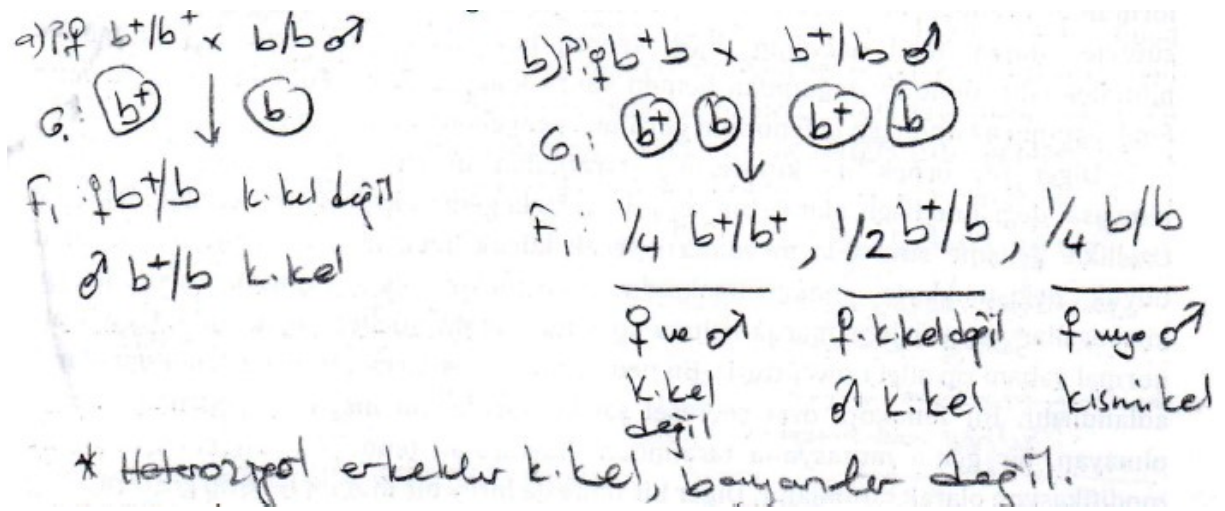 a) P: ♀ b⁺/b⁺ x b/b ♂
G: b⁺ b
F₁: ♀ b⁺/b k.kel değil
♂ b⁺/b k.kel
b) P: ♀ b⁺b x b⁺/b ♂
G: b⁺ b b⁺ b
F₁: 1/4 b⁺/b⁺, 1/2 b⁺/b, 1/4 b/b
♀ ve ♂ ♀ k.kel değil ♀ ♂
k.kel ♂ k.kel kısmi kel
değil
* Heterozigot erkekler k.kel, bayanlar değil.